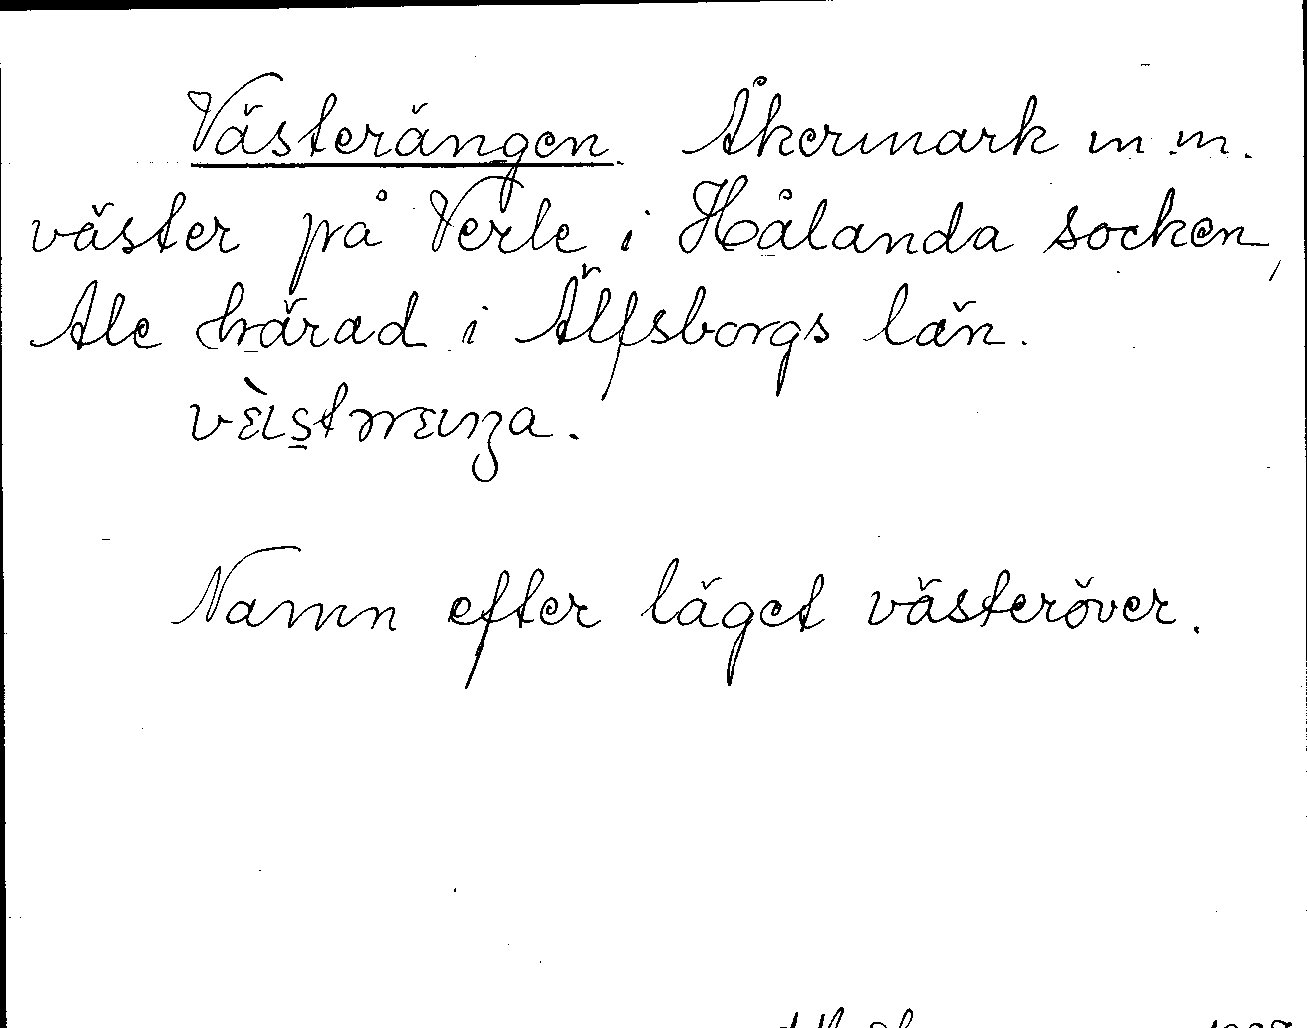 Västerängen. Åkermark m.m.
väster på Verle i Hålanda socken,
Ale härad i Älfsborgs län.
Namn efter läget västeröver.